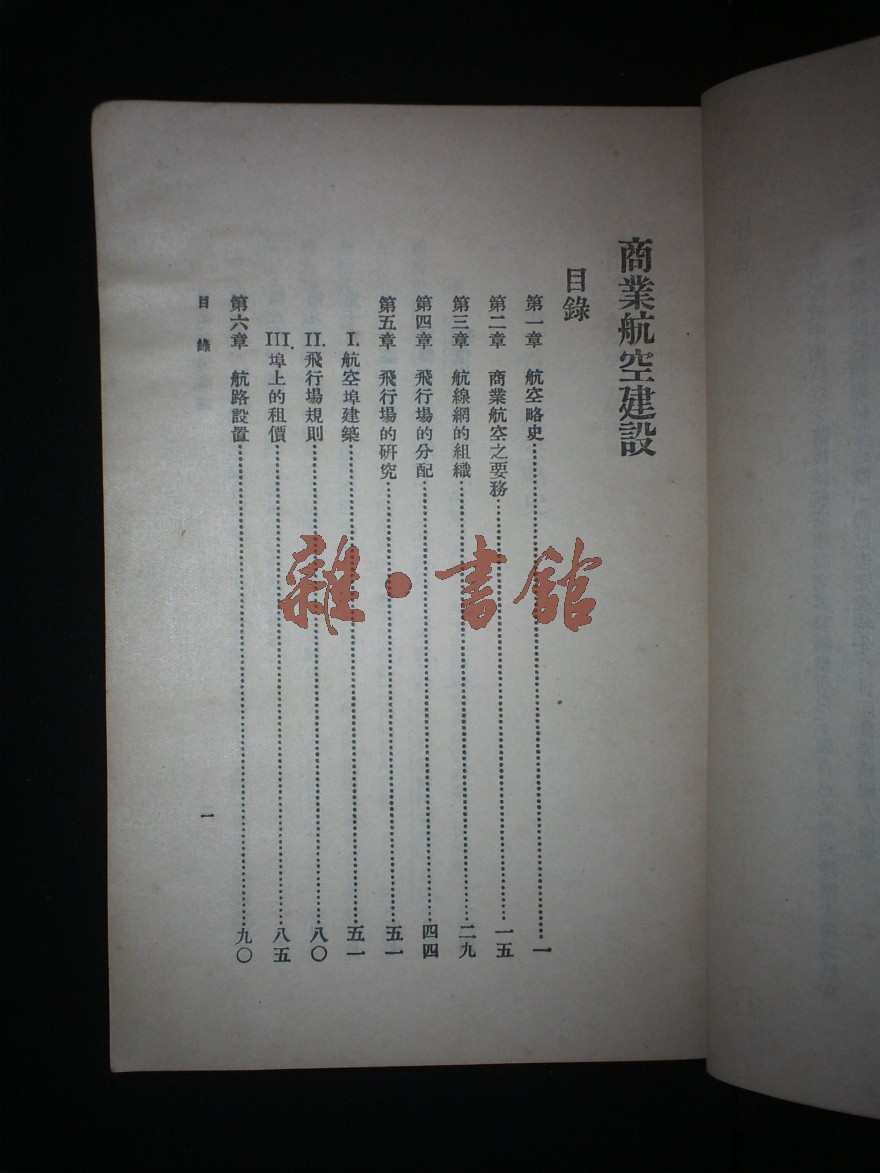 商業航空建設
目錄
第一章 航空略史……一
第二章 商業航空之要務……一五
第三章 航線網的組織……二九
第四章 飛行場的分配……四四
第五章 飛行場的研究……五一
I.航空埠建築……五一
II.飛行場規則……八〇
III.埠上的租價……八五
第六章 航路設置……九〇
目錄 一
雜·書館